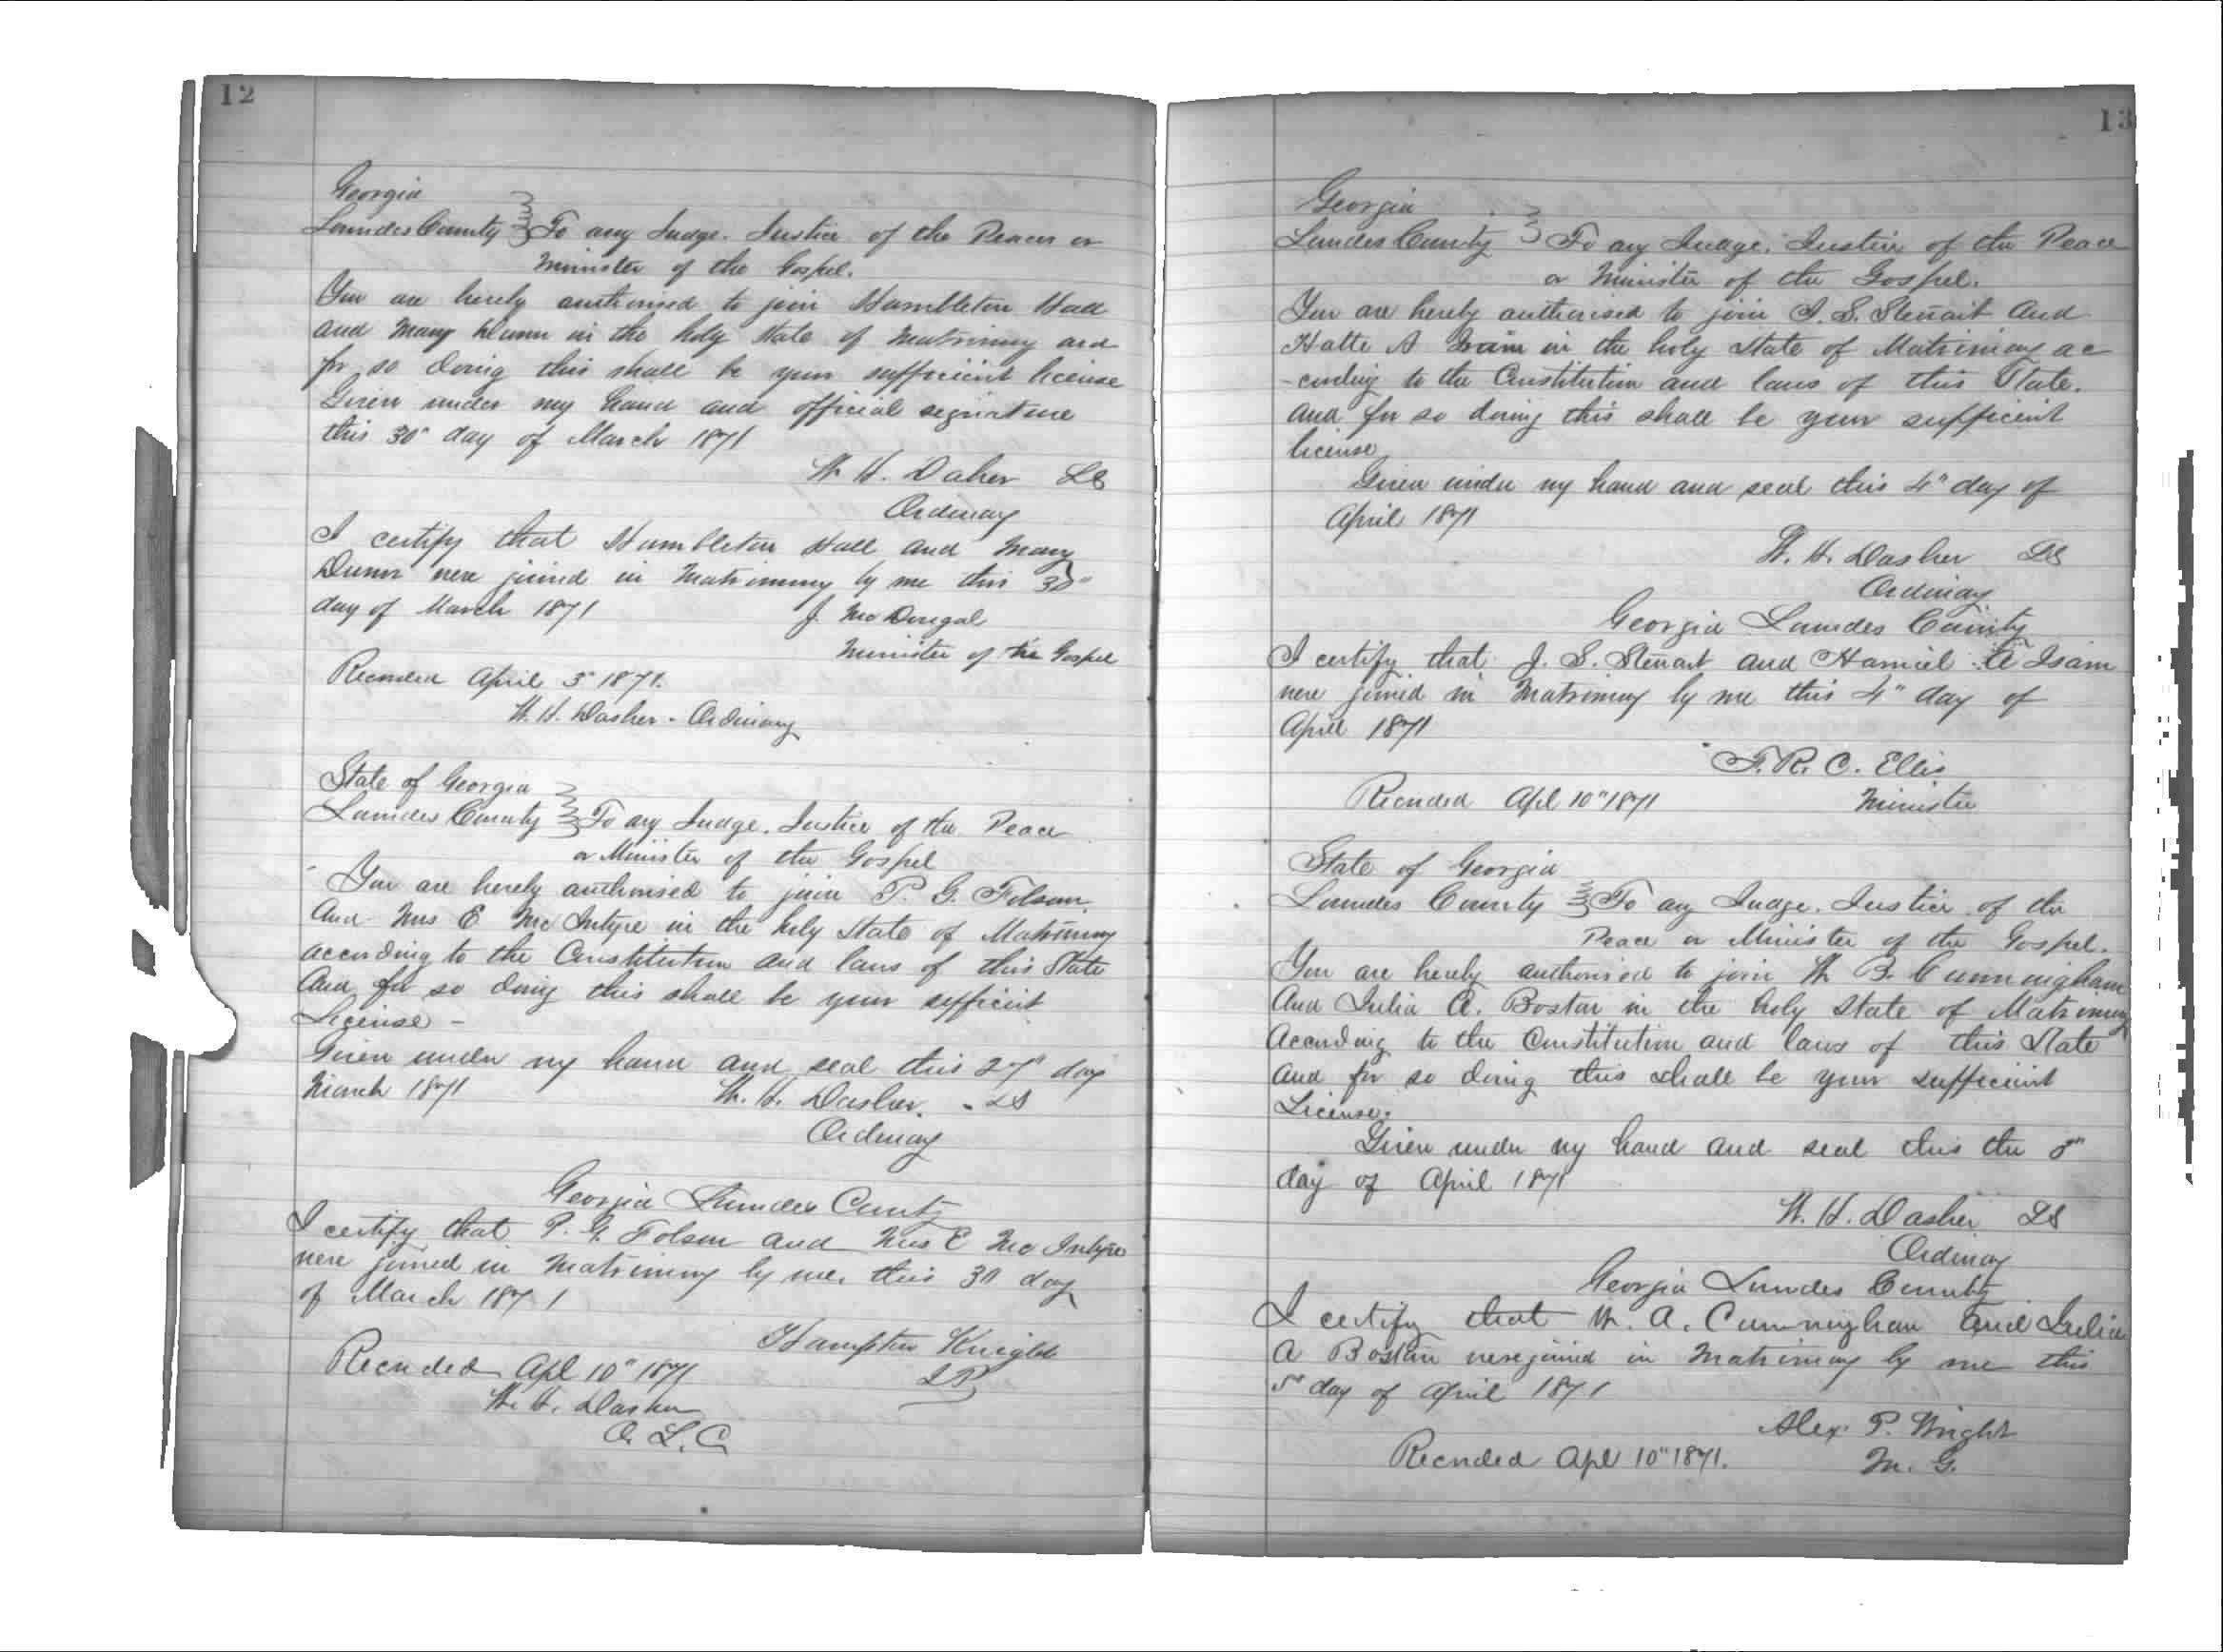 12
Georgia
Lowndes County To any Judge. Justice of the Peace or
Minister of the Gospel.
You are hereby authorised to join Hambleton Hall
and Mary Dunn in the holy State of Matrimony and
for so doing this shall be your sufficient license
Given under my hand and official signature
this 30" day of March 1871
W. H. Daher LS
Ordinary
I certify that Hambleton Hall and Mary
Dunn were joined in Matrimony by me this 30"
day of March 1871 J. McDougal
Minister of the Gospel
Recorded April 3" 1871.
W. H. Dasher - Ordinary
State of Georgia
Lowndes County To any Judge. Justice of the Peace
or Minister of the Gospel
You are hereby authorised to join P. G. Folsom
And Mrs E McIntyre in the holy State of Matrimony
according to the Constitution and laws of this State
And for so doing this shall be your sufficient
License -
Given under my hand and seal this 27" day
March 1871 W. H. Dasher. - LS
Ordinary
Georgia Lowndes County
I certify that P. G. Folsom and Mrs E McIntyre
were joined in Matrimony by me. this 30 day
of March 1871
Hampton Knight
JP
Recorded Apl 10" 1871
W. H. Dasher
O. L. C.
13
Georgia
Lowndes County To any Judge. Justice of the Peace
or Minister of the Gospel.
You are hereby authorised to join J. S. Stewart and
Hatte A in the holy State of Matrimony ac
-cording to the Constitution and laws of this State.
And for so doing this shall be your sufficient
license
Given under my hand and seal this 4" day of
April 1871
W. H. Dasher LS
Ordinary
Georgia Lowndes County
I certify that J. S. Stewart and A Isam
were joined in Matrimony by me this 4" day of
April 1871
T. R. C. Ellis
Recorded Apl 10" 1871 Minister
State of Georgia
Lowndes County To any Judge. Justice of the
Peace or Minister of the Gospel.
You are hereby authorised to join W. B. Cunningham
And Julia A. Boston in the holy State of Matrimony
According to the Constitution and laws of this State
And for so doing this shall be your sufficient
License.
Given under my hand and seal this the 5"
day of April 1871
W. H. Dasher LS
Ordinary
Georgia Lowndes County
I certify that W. A. Cunningham and Julia
A Boston were joined in Matrimony by me this
5" day of April 1871
Alex P. Wright
Recorded Apl 10" 1871. M. G.